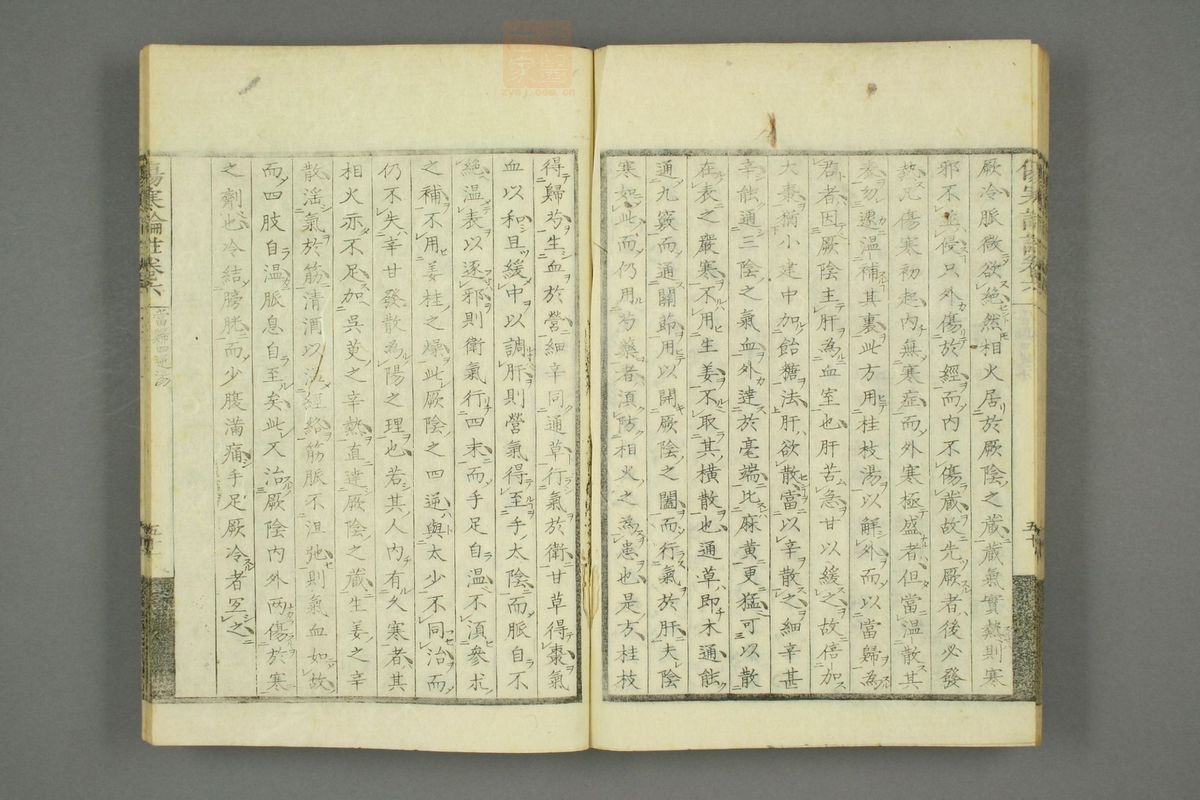 厥冷脈微欲絶然相火居於厥陰之蔵蔵氣實熱則寒
邪不能侵只外傷於經而内不傷蔵故先厥者後必發
熱凡傷寒初起内無寒症而外寒極盛者但當温散其
表勿遽温補其裏此方用桂枝湯以解外而以當歸為
君者因厥陰主肝為血室也肝苦急甘以緩之故倍加
大棗猶小建中加飴糖法肝欲散當以辛散之細辛甚
辛能通三陰之氣血外達於毫端比麻黄更猛可以散
在表之嚴寒不用生姜不取其横散也通草即木通能
通九竅而通關節用以開厥陰之闔而行氣於肝夫陰
寒如此而仍用芍藥者須防相火之為患也是方桂枝
得歸芍生血於營細辛同通草行氣於衛甘草得棗氣
血以和且緩中以調肝則營氣得至手太陰而脈自不
絶温表以逐邪則衛氣行四末而手足自温不須參朮
之補不用姜桂之燥此厥陰之四逆與太少不同治而
仍不失辛甘發散為陽之理也若其人内有久寒者其
相火亦不足加呉茰之辛熱直達厥陰之蔵生姜之辛
散滛氣於筋清酒以經絡筋脈不沮弛則氣血如故
而四肢自温脈息自至矣此又治厥陰内外兩傷於寒
之劑也冷結膀胱而少腹滿痛手足厥冷者宜之
傷寒論註卷六
當歸四逆湯
五十
zysj.com.cn